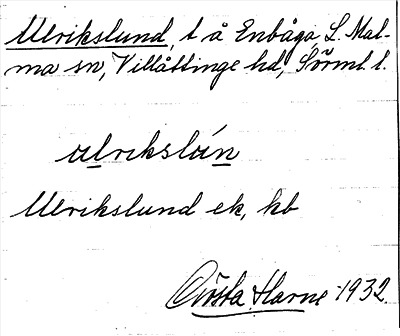 Ulrikslund, t å Enbåga, L. Mal-
ma sn, Villåttinge hd, Sörml. l.
ulrikslún
Ulrikslund ek, kb
Gösta Harne 1932.